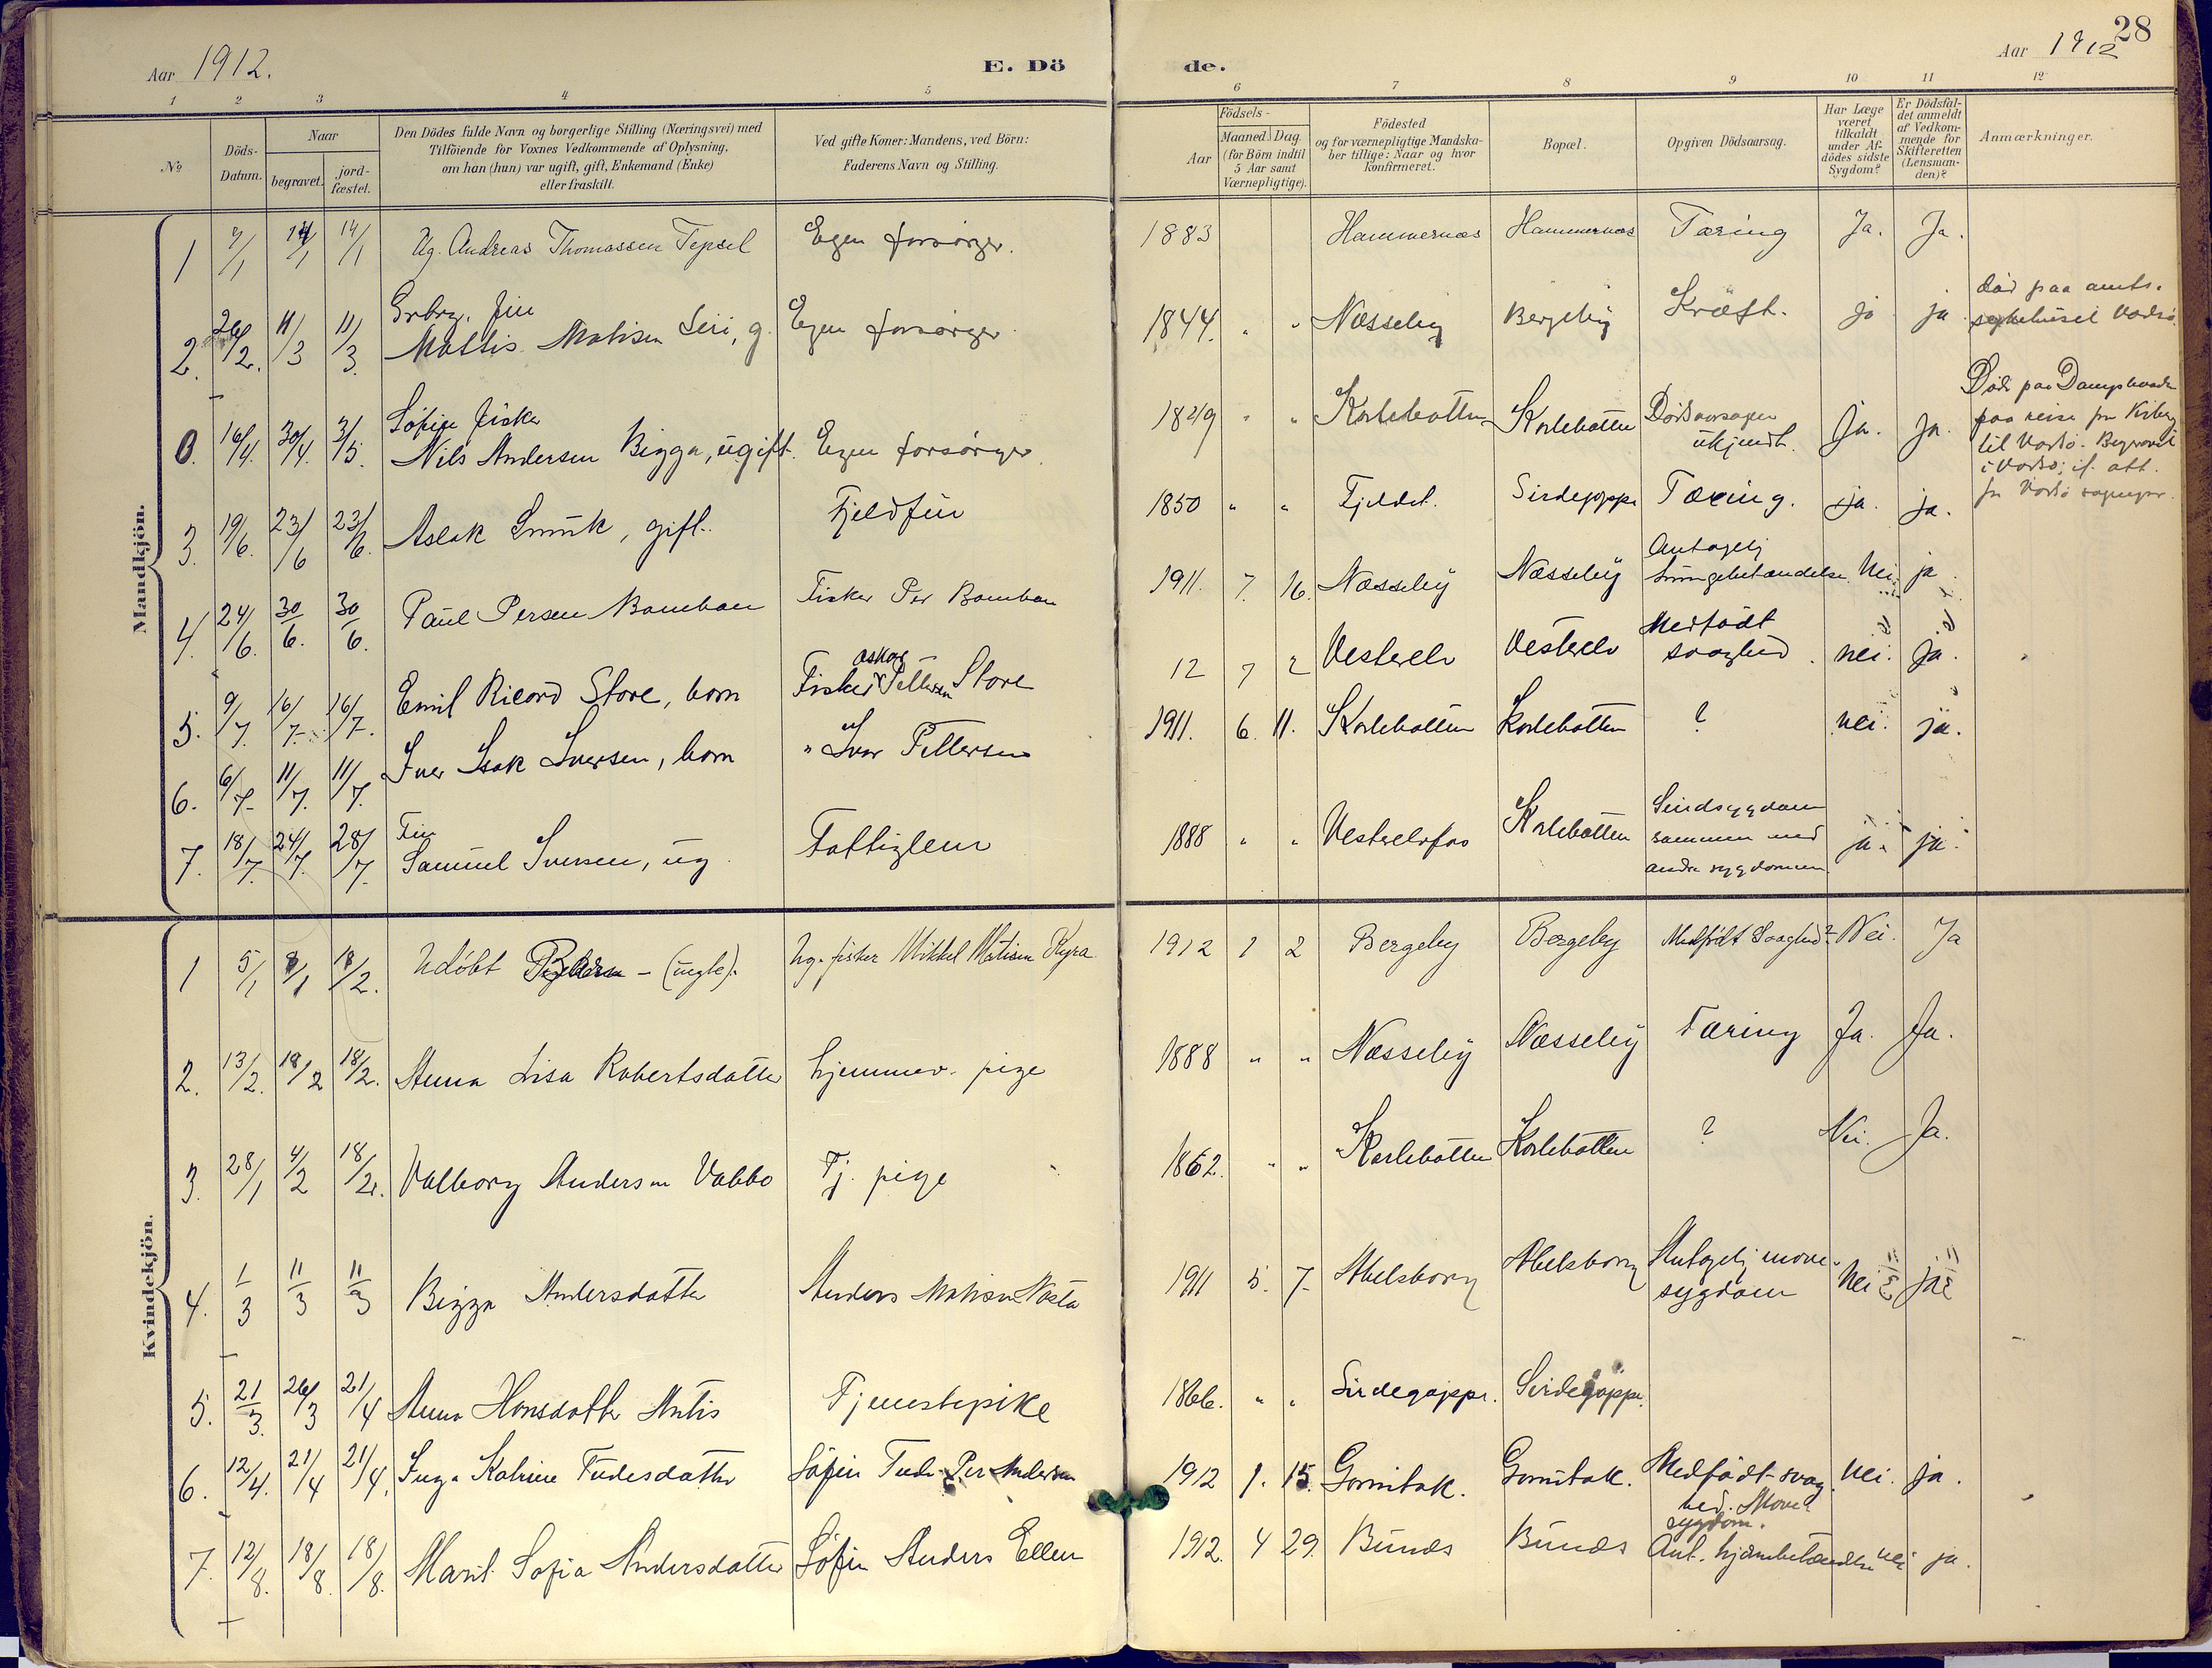 28
Aar 1912.
E. Dö
de.
Aar 1912
1 2 3 4 5 6 7 8 9 10 11 12
No
Döds-Datum.
Naar
begravet.
jord-fæstet.
Den Dödes fulde Navn og borgerlige Stilling (Næringsvei) med
Tilföiende for Voxnes Vedkommende af Oplysning,
om han (hun) var ugift, gift, Enkemand (Enke)
eller fraskilt.
Ved gifte Koner: Mandens, ved Börn:
Faderens Navn og Stilling.
Födsels-
Aar
Maaned. Dag.
(for Börn indtil
5 Aar samt
Værnepligtige).
Födested
og for værnepligtige Mandska-
ber tillige: Naar og hvor
konfirmeret.
Bopæl.
Opgiven Dödsaarsag.
Har Læge
været
tilkaldt
under Af-
dödes sidste
Sygdom?
Er Dödsfal-
det anmeldt
af Vedkom-
mende for
Skifteretten
(Lensman-
den)?
Anmærkninger.
Mandkjön.
1 7/1 14/1 14/1 Ug. Andreas Thomassen Tepsel Egen forsørger. 1883 Hammernæs Hammernæs Tæring Ja. Ja.
2. 26/2. 11/3 11/3. Mattis Mathisen Siri, g. Egen forsørger 1844. " " Næsseby Bergeby Kræft. ja ja Død paa amts-
sykehuset Vadsø.
0. 16/4. 30/4. 3/5. Søfin Fisker
Nils Andersen Bigga, ugift. Egen forsørger. 1829 " " Karlebotten Karlebotten Dødsaarsagen
ukjendt. Ja. Ja. Død paa Dampskibet
paa reise fra Kiberg
til Vardø. Begravet
i Vardø; if. att.
fra Vardø sognepr.
3. 19/6. 23/6 23/6. Aslak Smuk, gift. Fjeldfin 1850 " " Fjeldet. Sirdegoppe Tæring. ja. ja.
4. 24/6. 30/6. 30/6. Paul Persen Bomban Fisker Per Bomban 1911. 7. 16. Næsseby Næsseby Antagelig
lungebetændelse Nei. ja.
5. 9/7. 16/7. 16/7. Emil Ricard Store, barn Fisker Askar Pettersen Store 12 7 2 Vesterelv Vesterelv Medfødt
svaghed. nei. ja.
6. 6/7. 11/7. 11/7. Iver Isak Iversen, barn " Ivar Pettersen 1911. 6. 11. Karlebotten Karlebotten ? nei. ja.
7. 18/7. 24/7. 28/7. Fin
Samuel Iversen, ug. Fattiglem 1888 " " Vesterelvfos Karlebotten Sindsygdom
sammen med
andre sygdommer ja. ja.
Kvindekjön.
1 5/1 8/1 18/2. Udøbt (uegte). Ug. fisker Mikkel Matisen 1912 1 2 Bergeby Bergeby Medfødt Svaghed? Nei. Ja
2. 13/2. 18/2 18/2. Anna Lisa Robertsdatter hjemmev. pige 1888 " " Næsseby Næsseby Tæring Ja. Ja.
3. 28/1 4/2 18/2. Valborg Andersen Vabbo Tj. pige 1862. " " Karlebotten Karlebotten ? Nei. Ja.
4. 1/3 11/3 11/3 Bigga Andersdatter Anders Mathisen Nasta 1911 5. 7. Abelsborg Abelsborg Antagelig mave-
sygdom Nei ja
5. 21/3. 26/3 21/4 Anna Hansdatter Antis Tjenestepike 1866. " " Sirdegoppe. Sirdegoppe.
6. 12/4. 21/4 21/4. Inga Katrine Tudesdatter Søfin Tude Per Andersen 1912 1. 15. Gornitak. Gornitak. Medfødt svag
hed. Mave
sygdom. Nei. ja.
7. 12/8. 18/8. 18/8. Marit Sofia Andersdatter Søfin Anders Ellen 1912. 4 29. Bunds Bunds Ant. hjernebetændelse nei ja.